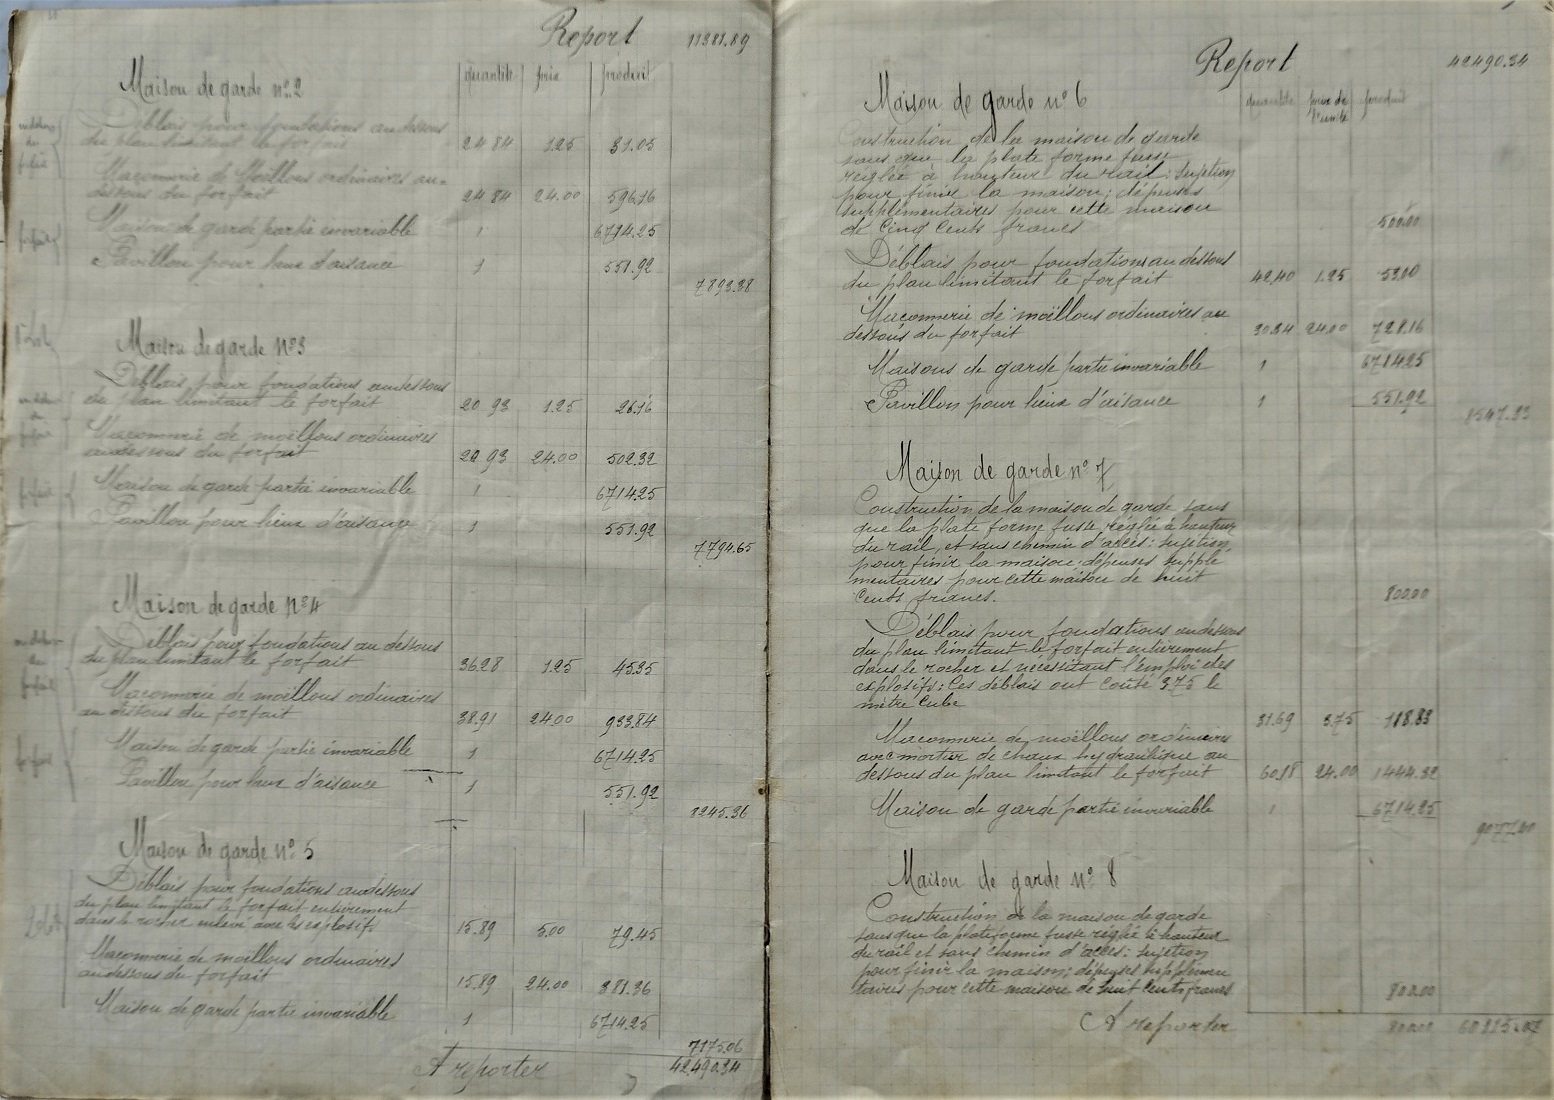 Report 11381.89
quantité prix produit
Maison de garde nº 2
Déblais pour fondations au dessous
du plan limitant le forfait 24 84 1.25 31.05
Maçonnerie de Moëllons ordinaires au-
dessous du forfait 24 84 24.00 596.16
Maison de garde partie invariable 1 6714.25
Pavillon pour lieux d'aisance 1 551.92
7893.38
Maison de garde Nº 3
Déblais pour fondations au dessous
du plan limitant le forfait 20 93 1.25 26.16
Maçonnerie de moëllons ordinaires
au dessous du forfait 20 93 24.00 502.32
Maison de garde partie invariable 1 6714.25
Pavillon pour lieux d'aisance 1 551.92
7794.65
Maison de garde Nº 4
Déblais pour fondations au dessous
du plan limitant le forfait 36.28 1.25 45.35
Maçonnerie de moëllons ordinaires
au dessous du forfait 38.91 24.00 933.84
Maison de garde partie invariable 1 6714.25
Pavillon pour lieux d'aisance 1 551.92
8245.36
Maison de garde Nº 5
Déblais pour fondations au dessous
du plan limitant le forfait entièrement
dans le rocher enlevé avec les explosifs 15.89 5.00 79.45
Maçonnerie de moëllons ordinaires
au dessous du forfait 15.89 24.00 381.36
Maison de garde partie invariable 1 6714.25
7175.06
A reporter 42490.34
Report 42490.34
quantité prix de l'unité produit
Maison de garde nº 6
Construction de la maison de garde
sans que la plate forme fusse
réglée à hauteur du rail: sujétion
pour finir la maison; dépenses
supplémentaires pour cette maison
de cinq cents francs 500.00
Déblais pour fondations au dessous
du plan limitant le forfait 42,40 1.25 53.00
Maçonnerie de moëllons ordinaires au
dessous du forfait 30.34 24.00 728.16
Maisons de garde partie invariable 1 6714.25
Pavillon pour lieux d'aisance 1 551.92
8547.33
Maison de garde nº 7
Construction de la maison de garde sans
que la plate forme fusse réglée à hauteur
du rail, et sans chemin d'accès: sujétion
pour finir la maison; dépenses supplé
mentaires pour cette maison de huit
cents francs. 800.00
Déblais pour fondations au dessous
du plan limitant le forfait entièrement
dans le rocher et nécessitant l'emploi des
explosifs: Ces déblais ont coûté 3.75 le
mètre cube 31.69 3.75 118.83
Maçonnerie de moëllons ordinaires
avec mortier de chaux hydraulique au
dessous du plan limitant le forfait 60.18 24.00 1444.32
Maison de garde partie invariable 1 6714.25
9077.40
Maison de garde Nº 8
Construction de la maison de garde
sans que la plateforme fusse réglée à hauteur
du rail et sans chemin d'accès: sujétion
pour finir la maison; dépenses supplémen
taires pour cette maison de huit cents francs 800.00
A reporter 800.00